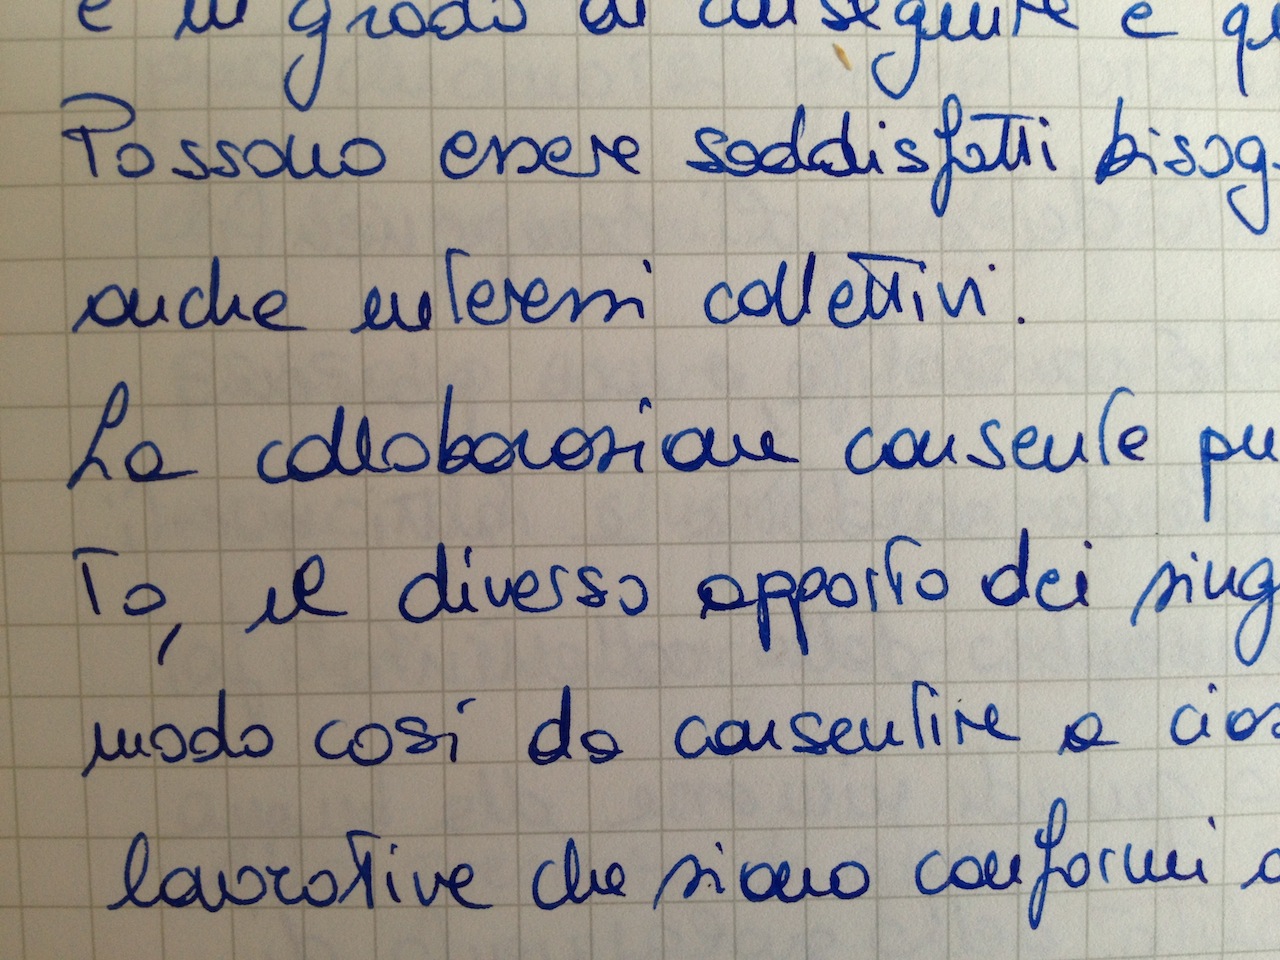 è in grado di conseguire e qu
Possono essere soddisfatti bisog
anche interessi collettivi.
La collaborazione consente pu
to, il diverso apporto dei sing
modo così da consentire a cias
lavorative che siano conformi a